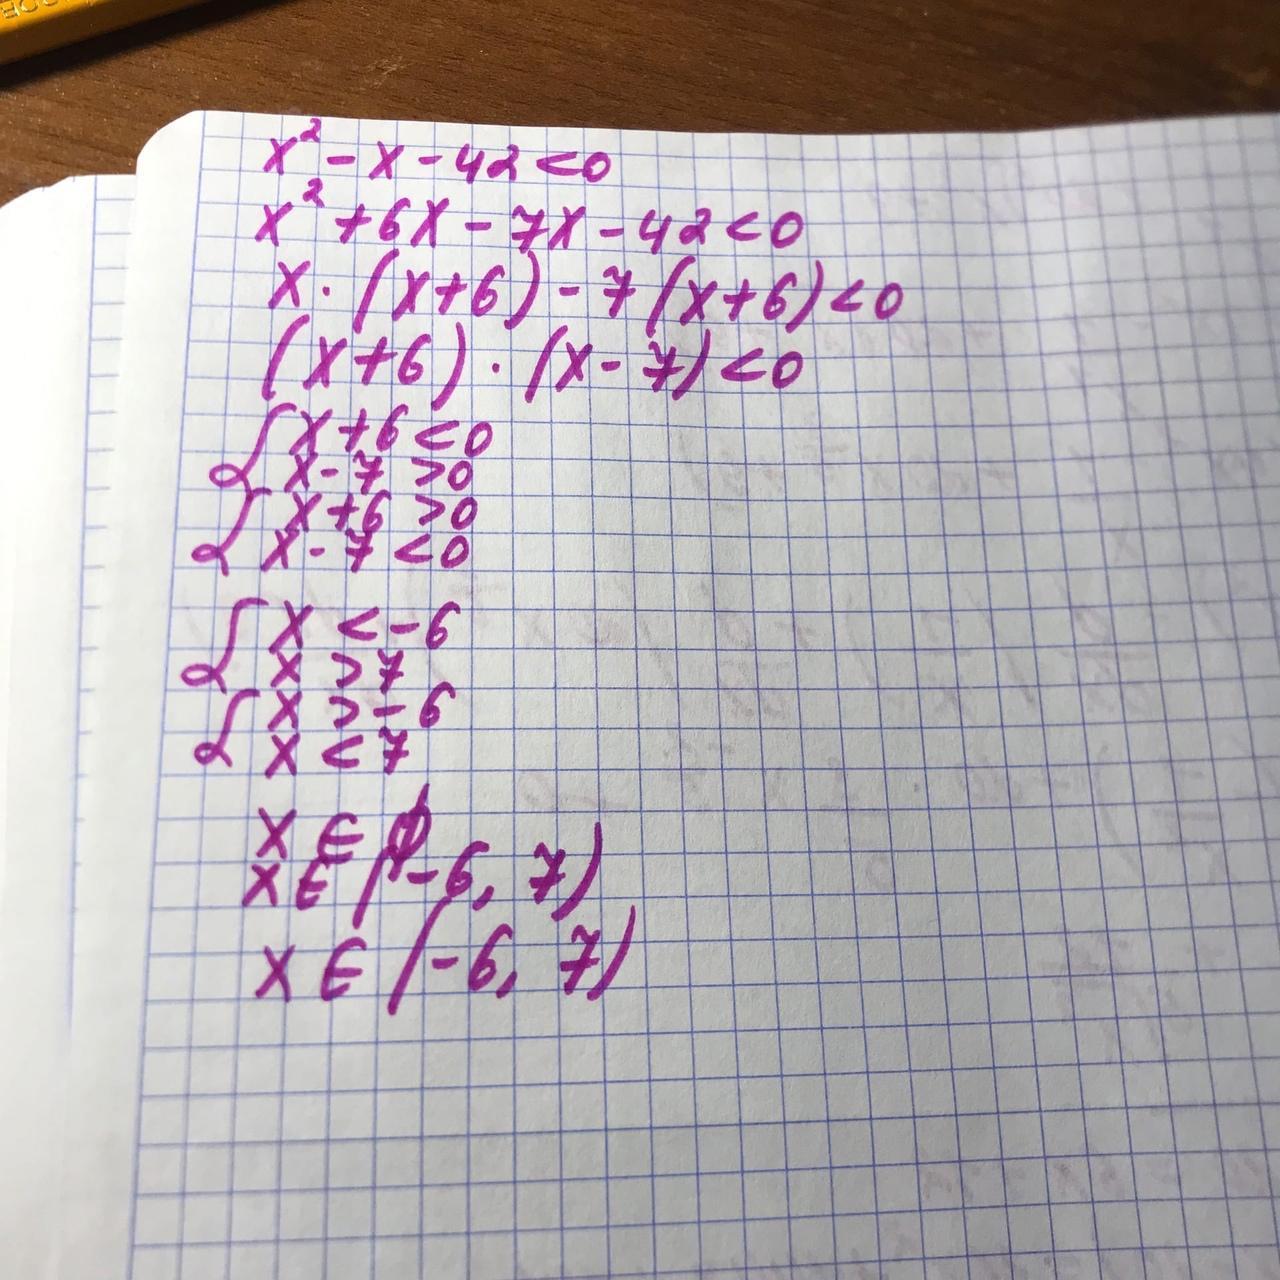 x² - x - 42 < 0
x² + 6x - 7x - 42 < 0
x · (x+6) - 7(x+6) < 0
(x+6) · (x-7) < 0
{ x+6 < 0
x-7 > 0
{ x+6 > 0
x-7 < 0
{ x < -6
x > 7
{ x > -6
x < 7
x ∈ ∅
x ∈ (-6, 7)
x ∈ (-6, 7)